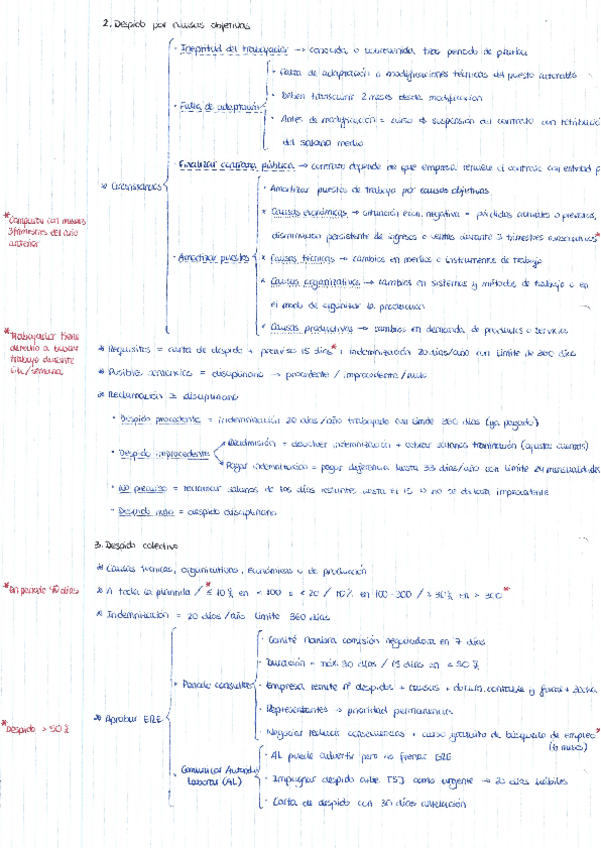 2. Despido por causas objetivas
· Ineptitud del trabajador → conocida o sobrevenida tras periodo de prueba
· Falta de adaptación a modificaciones técnicas del puesto
· Faltas de adaptación
· Deben transcurrir 2 meses desde modificación
· Antes de modificación = curso suspensión del contrato con
del salario medio
· Finalizar contrata pública → contrato depende de que empresa renueve el contrato con entidad
* Circunstancias
· Amortizar puestos de trabajo por causas objetivas
* Causas económicas → situación econ. negativa = pérdidas actuales o previstas,
disminución persistente de ingresos o ventas durante 3 trimestres consecutivos*
* Comparado con mismos
3 trimestres del año
anterior
· Amortizar puestos
* Causas técnicas → cambios en medios o instrumentos de trabajo
* Causas organizativas → cambios en sistemas y métodos de trabajo o en
el modo de organizar la producción
* Causas productivas → cambios en demanda de productos o servicios
* Trabajador tiene
derecho a buscar
trabajo durante
6h/semana
* Requisitos = carta de despido + preaviso 15 días* + indemnización 20 días/año con límite de 360 días
* Posibles sentencias = disciplinario → procedente / improcedente / nulo
* Reclamación = disciplinario
· Despido procedente = indemnización 20 días/año trabajado con límite 360 días (ya pagado)
· Despido improcedente
Readmisión = devolver indemnización + cobrar salarios tramitación
Pagar indemnización = pagar diferencia hasta 33 días/año con límite 24 mensualidades
· No preaviso = reclamar salarios de los días restantes hasta el 15 → no se declara improcedente
· Despido nulo = despido disciplinario
3. Despido colectivo
* Causas técnicas, organizativas, económicas o de producción
* En periodo 90 días
* A toda la plantilla / * 10 % en < 100 = < 20 / 10% en 100-300 / > 30 % en > 300 *
* Indemnización = 20 días/año límite 360 días
· Comité nombra comisión negociadora en 7 días
· Duración = máx. 30 días / 15 días en < 50
· Periodo consultas
· Empresa remite nº despidos + causas + docum. contable y fiscal +
· Representantes → prioridad permanencia
· Negociar reducir consecuencias + curso gratuito de búsqueda de empleo*
(6 meses)
* Despido > 50 %
* Aprobar ERE
· Comunicar Autoridad
Laboral (AL)
· AL puede advertir pero no frenar ERE
· Impugnar despido ante TSJ como urgente → 20 días hábiles
· Carta de despido con 30 días antelación